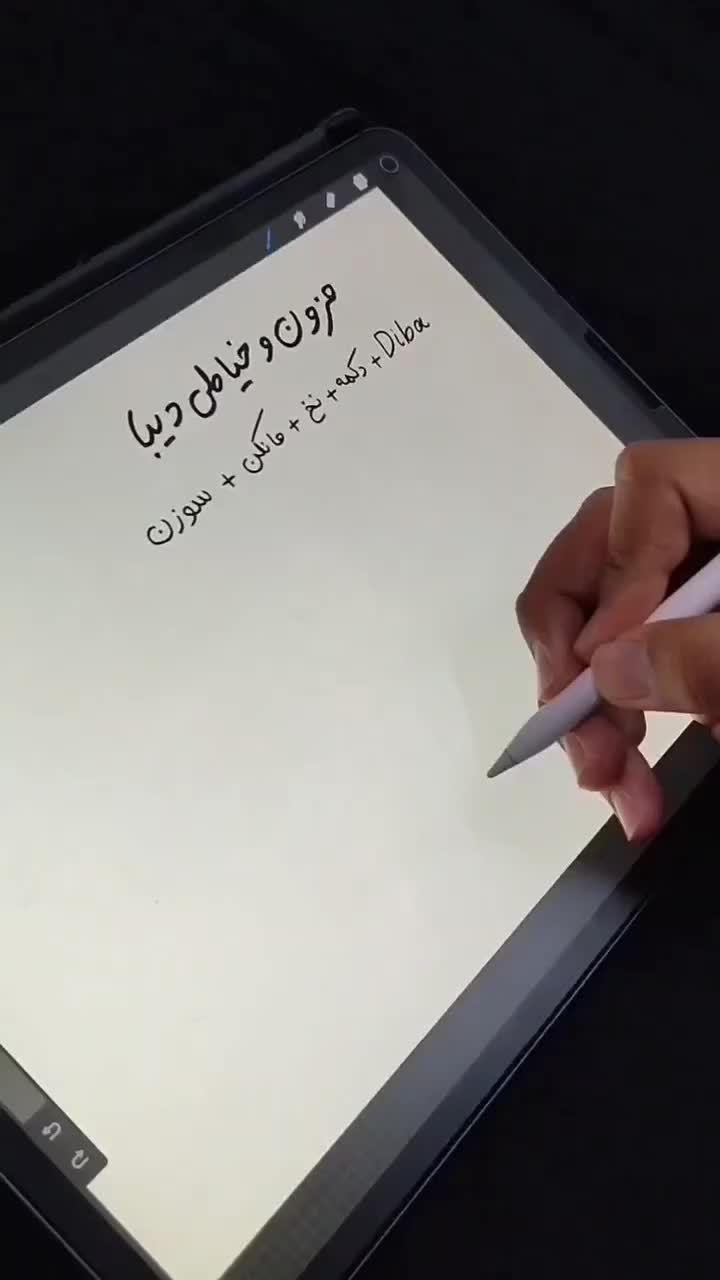 مزون و خیاطی دیبا
Diba + دکمه + نخ + مانکن + سوزن